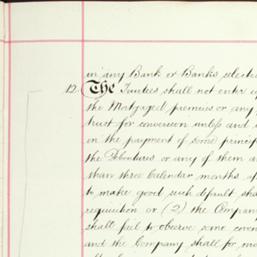 in any Bank or Banks selecte
12. The Trustees shall not enter up
the Mortgaged premises or any
trust for conversion unless and
in the payment of some princip
the Debentures or any of them a
than three Calendar months af
to make good such default sha
requisition or (2) the Compan
shall fail to observe some coven
and the Company shall for mo